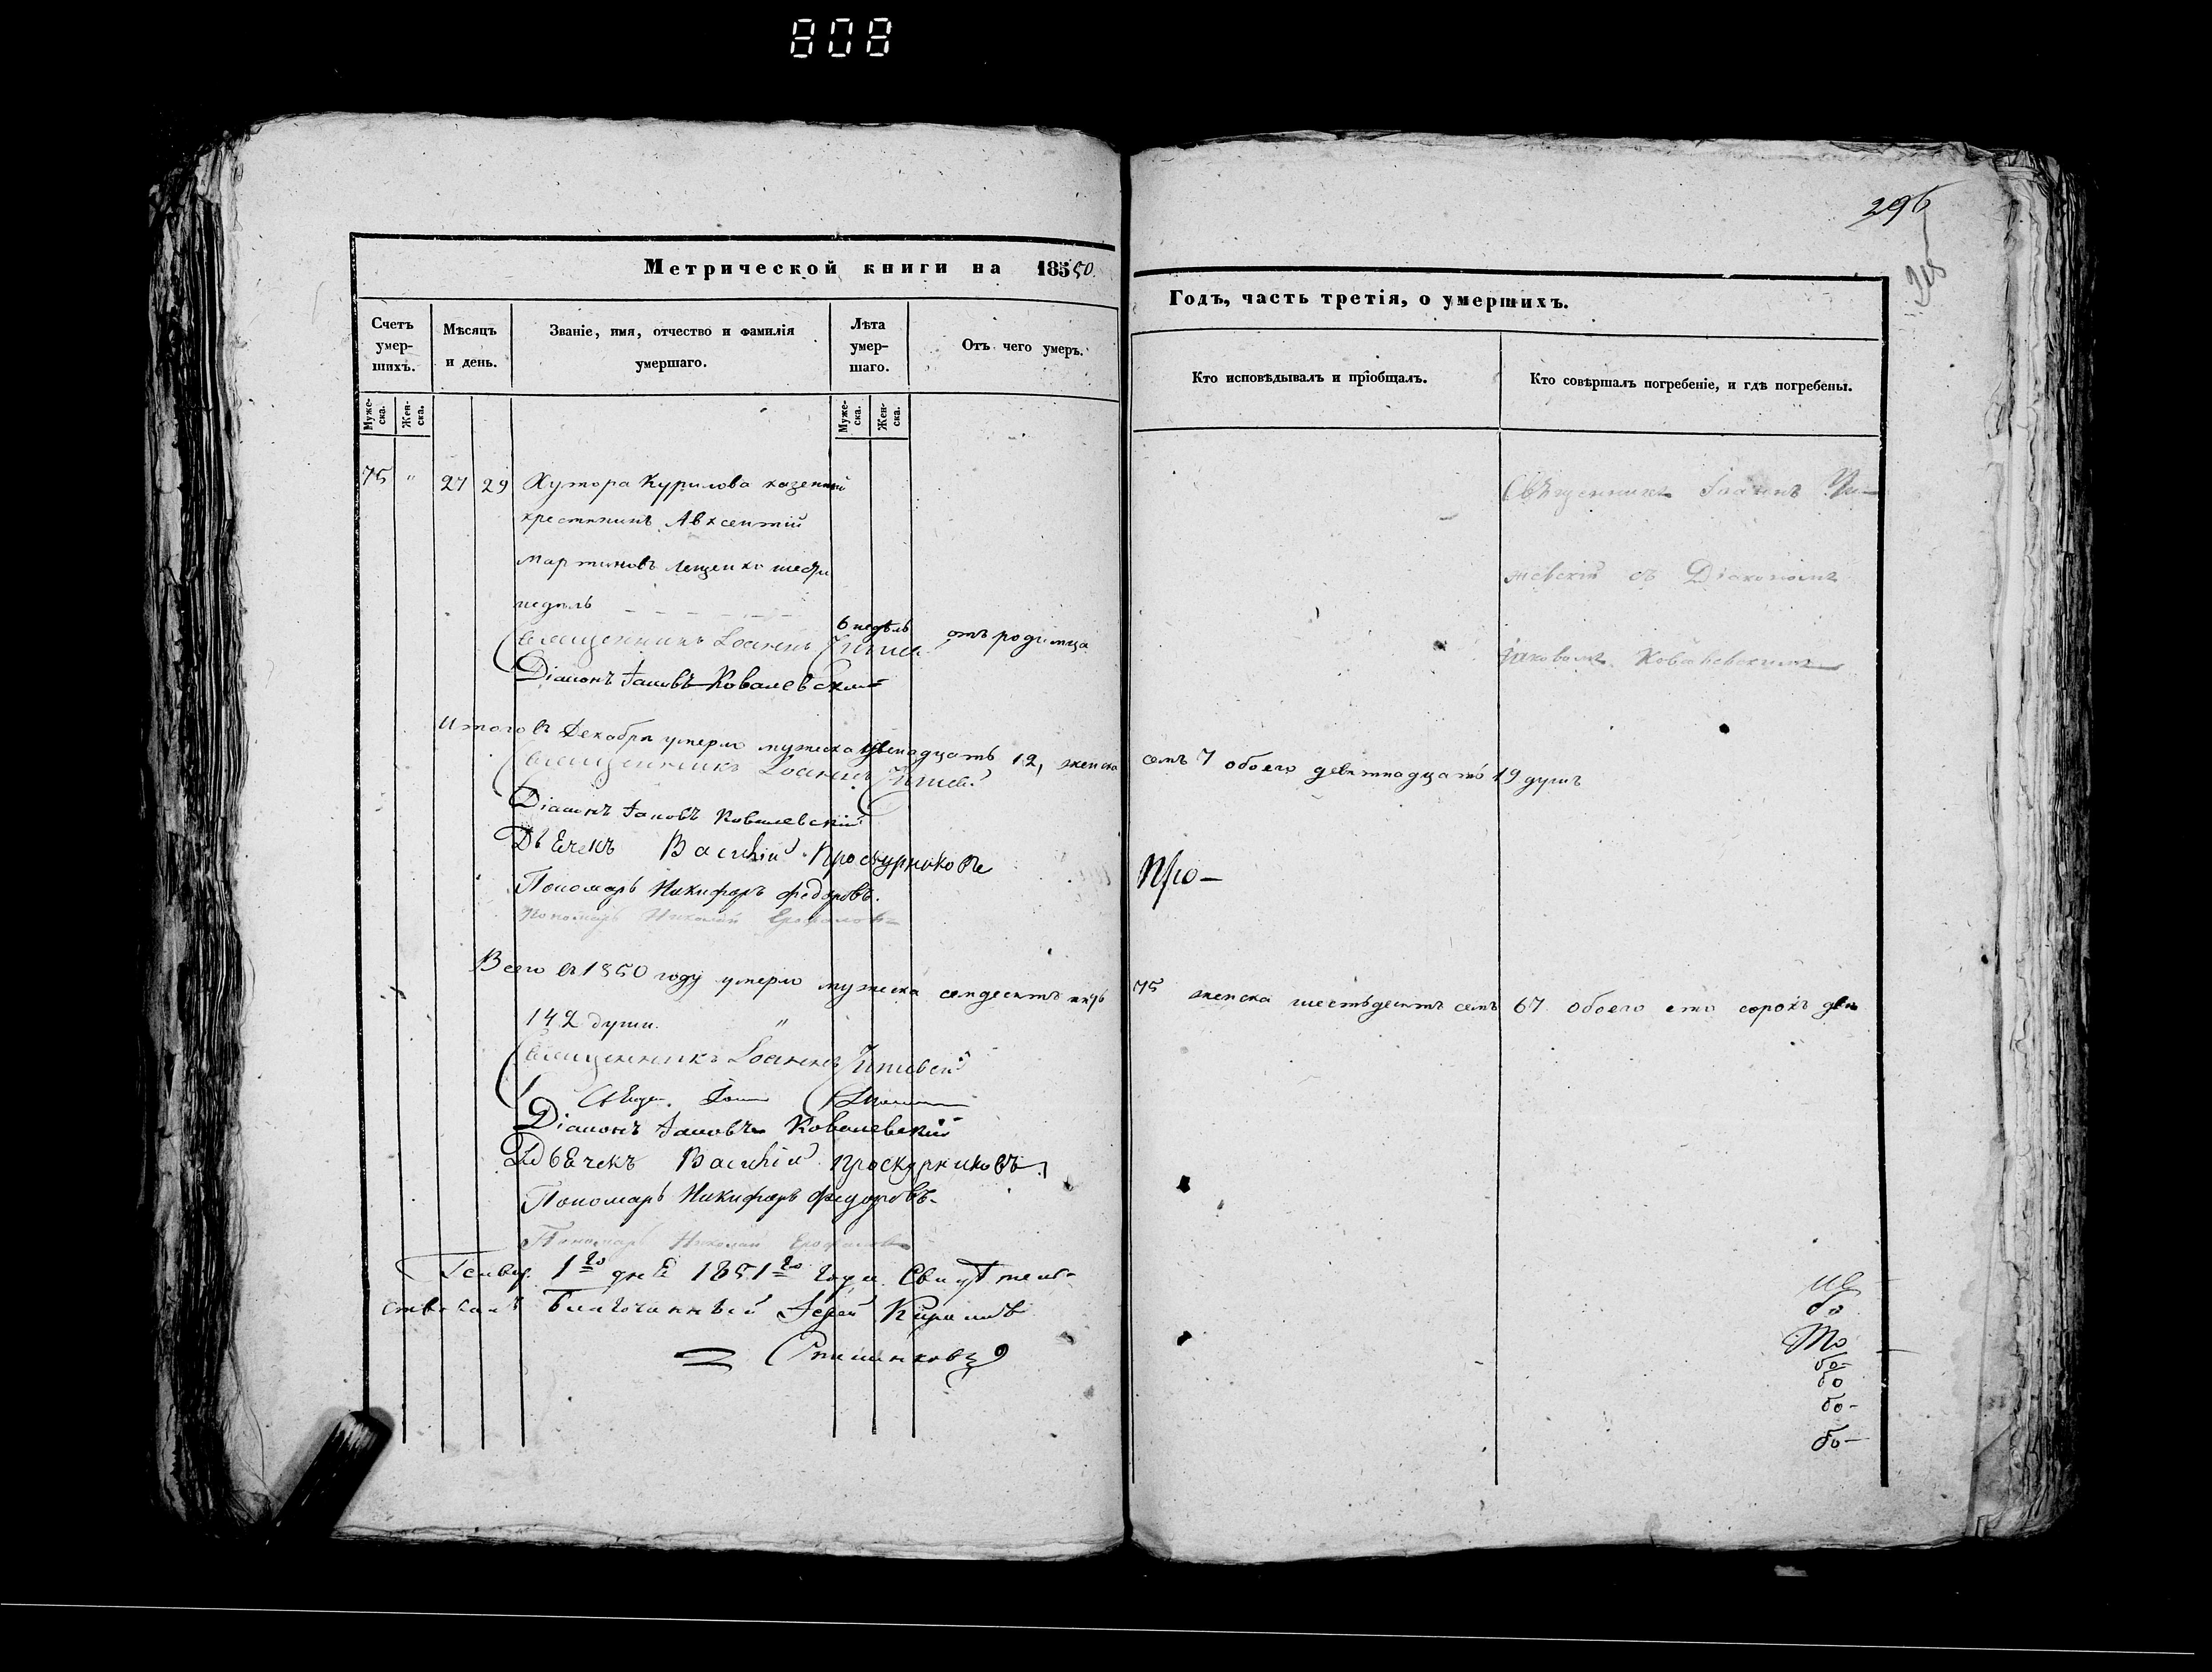 808
296
Метрической книги на 18550.
Годъ, часть третія, о умершихъ.
Счетъ умер-шихъ.
Мѣсяцъ и день.
Званіе, имя, отчество и фамилія умершаго.
Лѣта умер-шаго.
Отъ чего умеръ.
Кто исповѣдывалъ и пріобщалъ.
Кто совѣршалъ погребеніе, и гдѣ погребены.
Муже-ска.
Жен-ска.
Муже-ска.
Жен-ска.
75 " 27 29 Хутора Курилова казенный
крестянинъ Авксентій
Мартиновъ Лещенко шести
недѣль
6 недѣль отъ родимца
Священникъ Іоаннъ
Діаконъ Іаковъ Ковалевскій
Священникъ Іоаннъ
съ Діакономъ
Іаковомъ Ковалевскимъ
Итого въ Декабрѣ умерло мужеска двенадцать 12, женска семъ 7 обоего девятнадцать 19 душъ
Священникъ Іоаннъ
Діаконъ Іаковъ Ковалевскій
Дьячекъ Василій Проскурниковъ
Про-
Пономарь Никифоръ Федоровъ.
Пономарь Николай
Всего въ 1850 году умерло мужеска семдесятъ пять 75 женска шестьдесятъ семъ 67 обоего сто сорокъ две
142 души. "
Священникъ Іоаннъ
Діаконъ Іаковъ Ковалевскій
Дьячекъ Василій Проскурниковъ
Пономарь Никифоръ Федоровъ-
Пономарь Николай
Генвар. 1го дня 1851го года Свидѣтель-
ствовалъ Благочинный Іерей Кирилъ
бо
То
бо-
бо
бо-
бо-